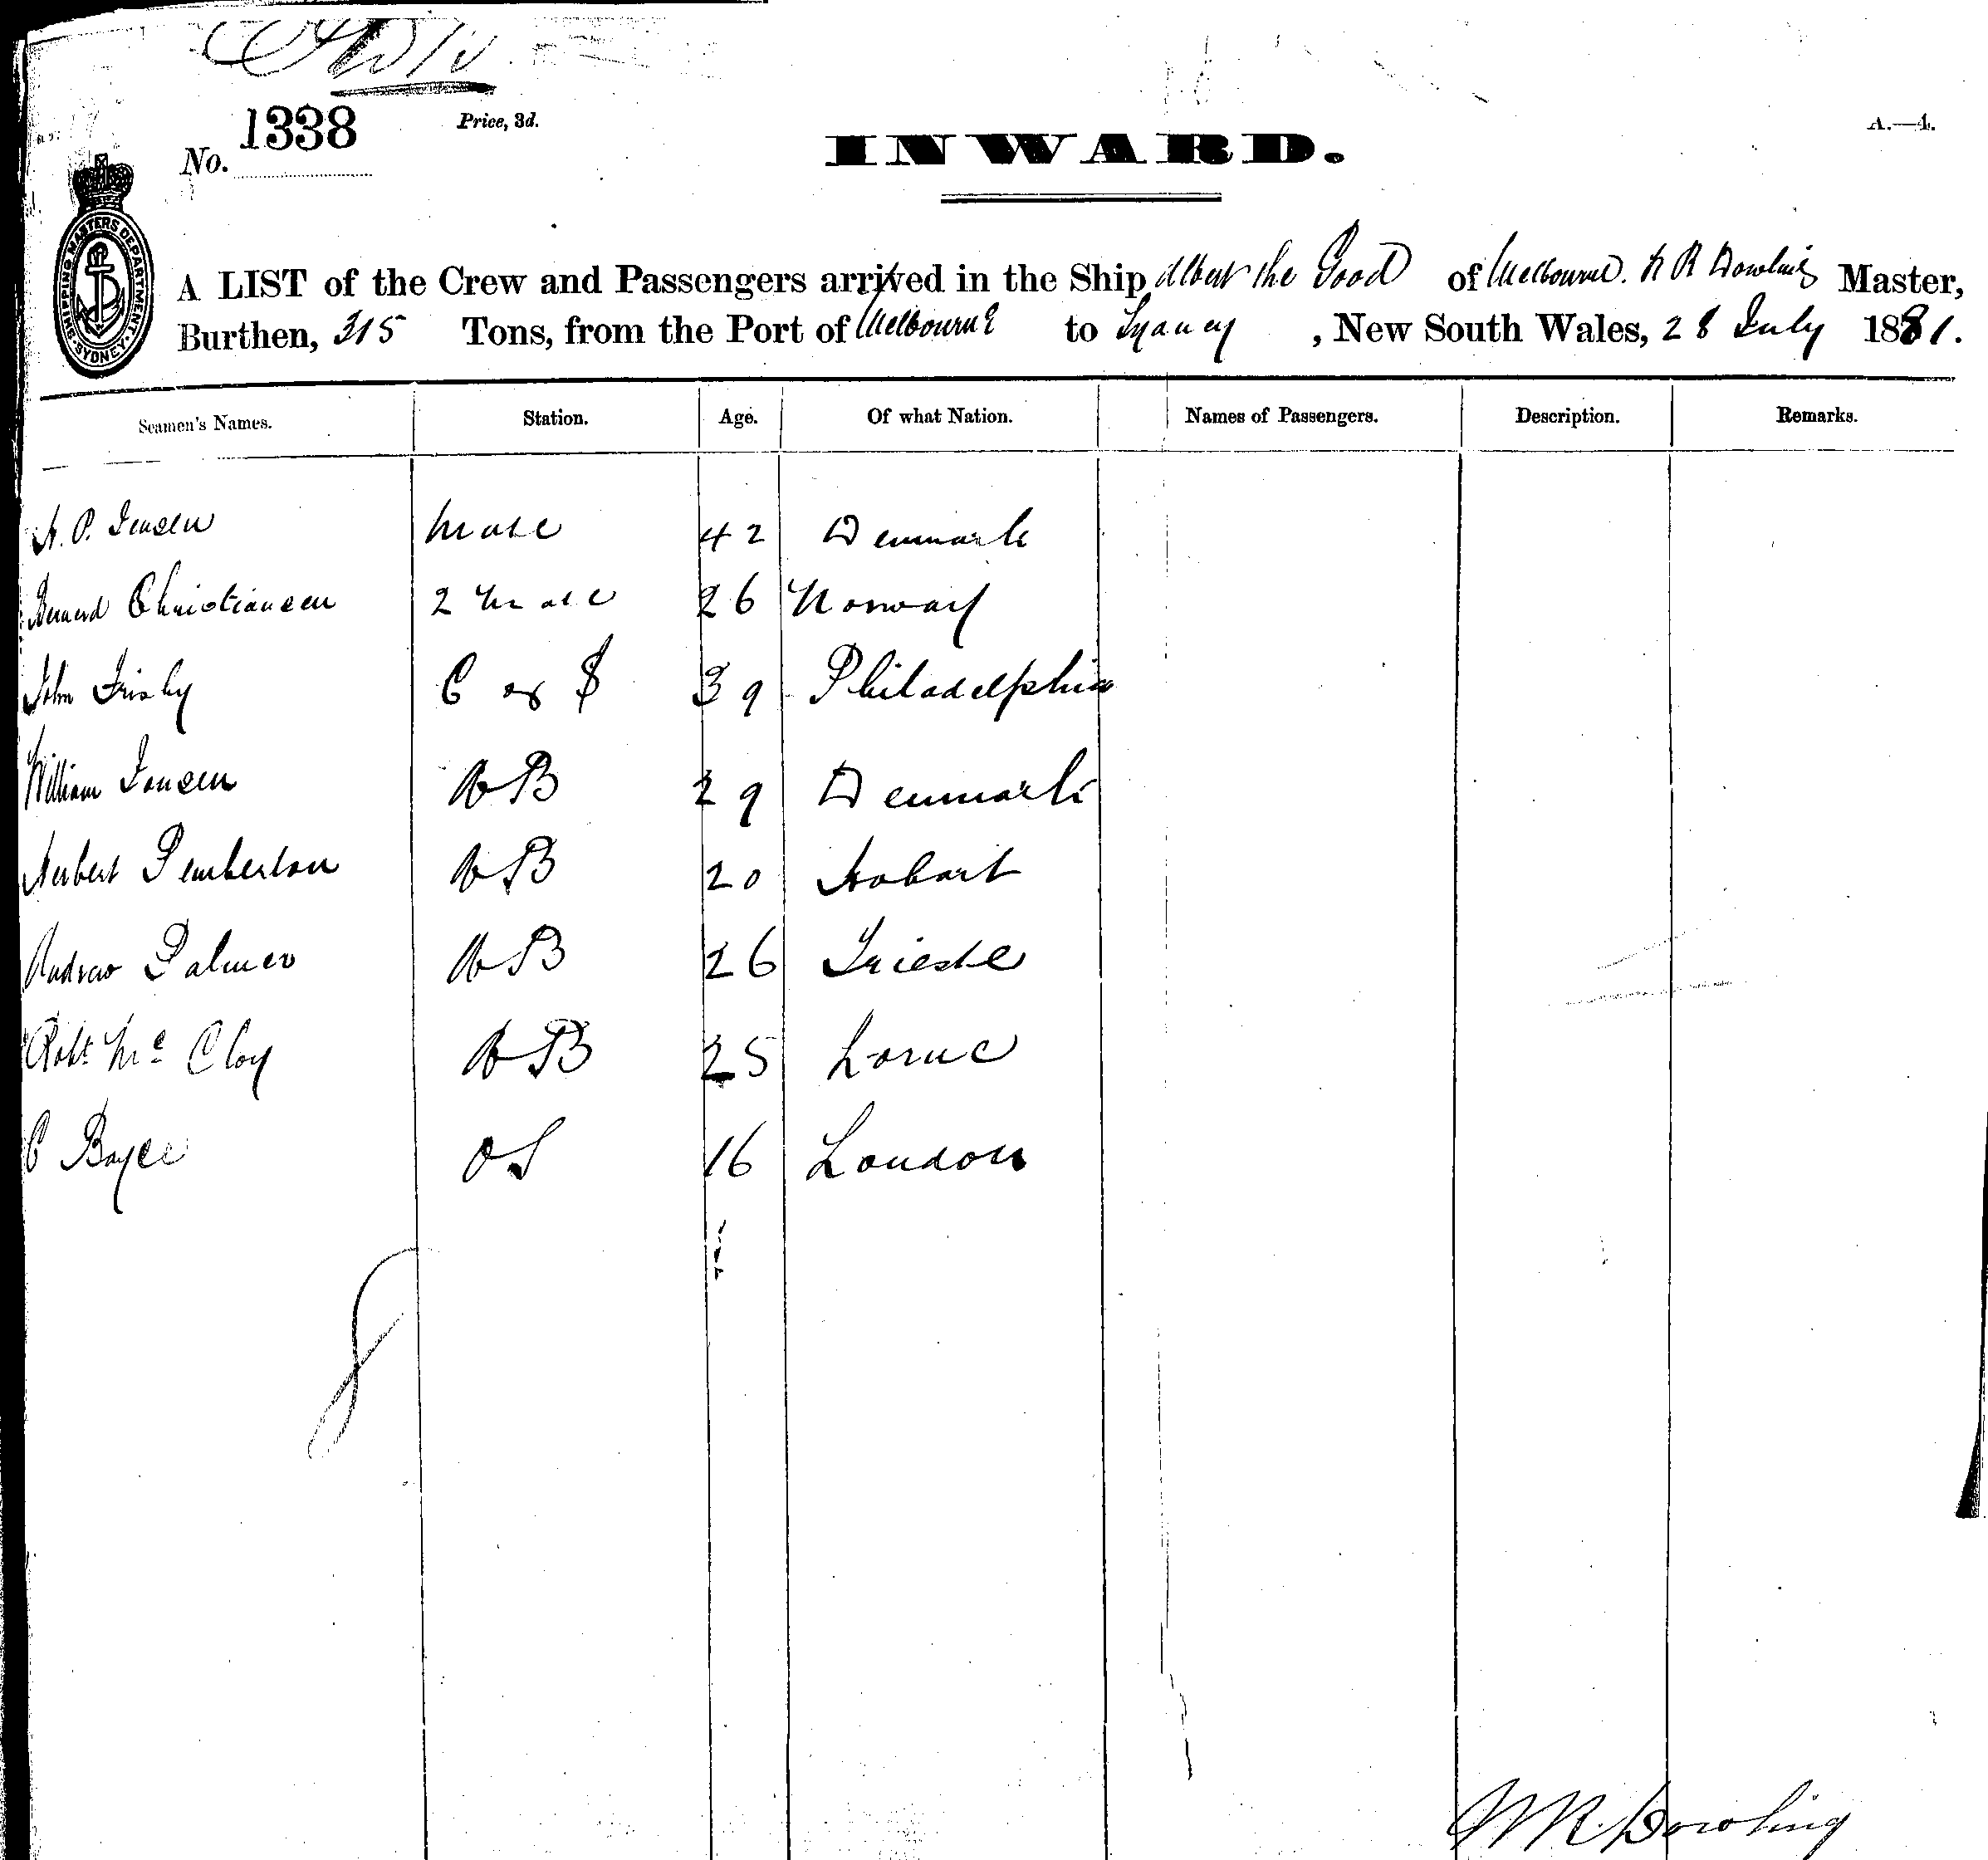 No. 1338
Price, 3d.
A.—4.
INWARD.
SHIPPING MASTERS DEPARTMENT SYDNEY
A LIST of the Crew and Passengers arrived in the Ship Albert the Good of Melbourne. R Dowling Master,
Burthen, 315 Tons, from the Port of Melbourne to Sydney, New South Wales, 28 July 1881.
Seamen's Names. Station. Age. Of what Nation. Names of Passengers. Description. Remarks.
P. Jensen Mate 42 Denmark
Bernard Christiansen 2 Mate 26 Norway
John Frisby C & S 39 Philadelphia
William Jansen AB 29 Denmark
Herbert Pemberton AB 20 Hobart
Andrew Palmer AB 26 Trieste
Robt. Mc Cloy AB 25 Larne
C Boyce OS 16 London
8
R. Dowling